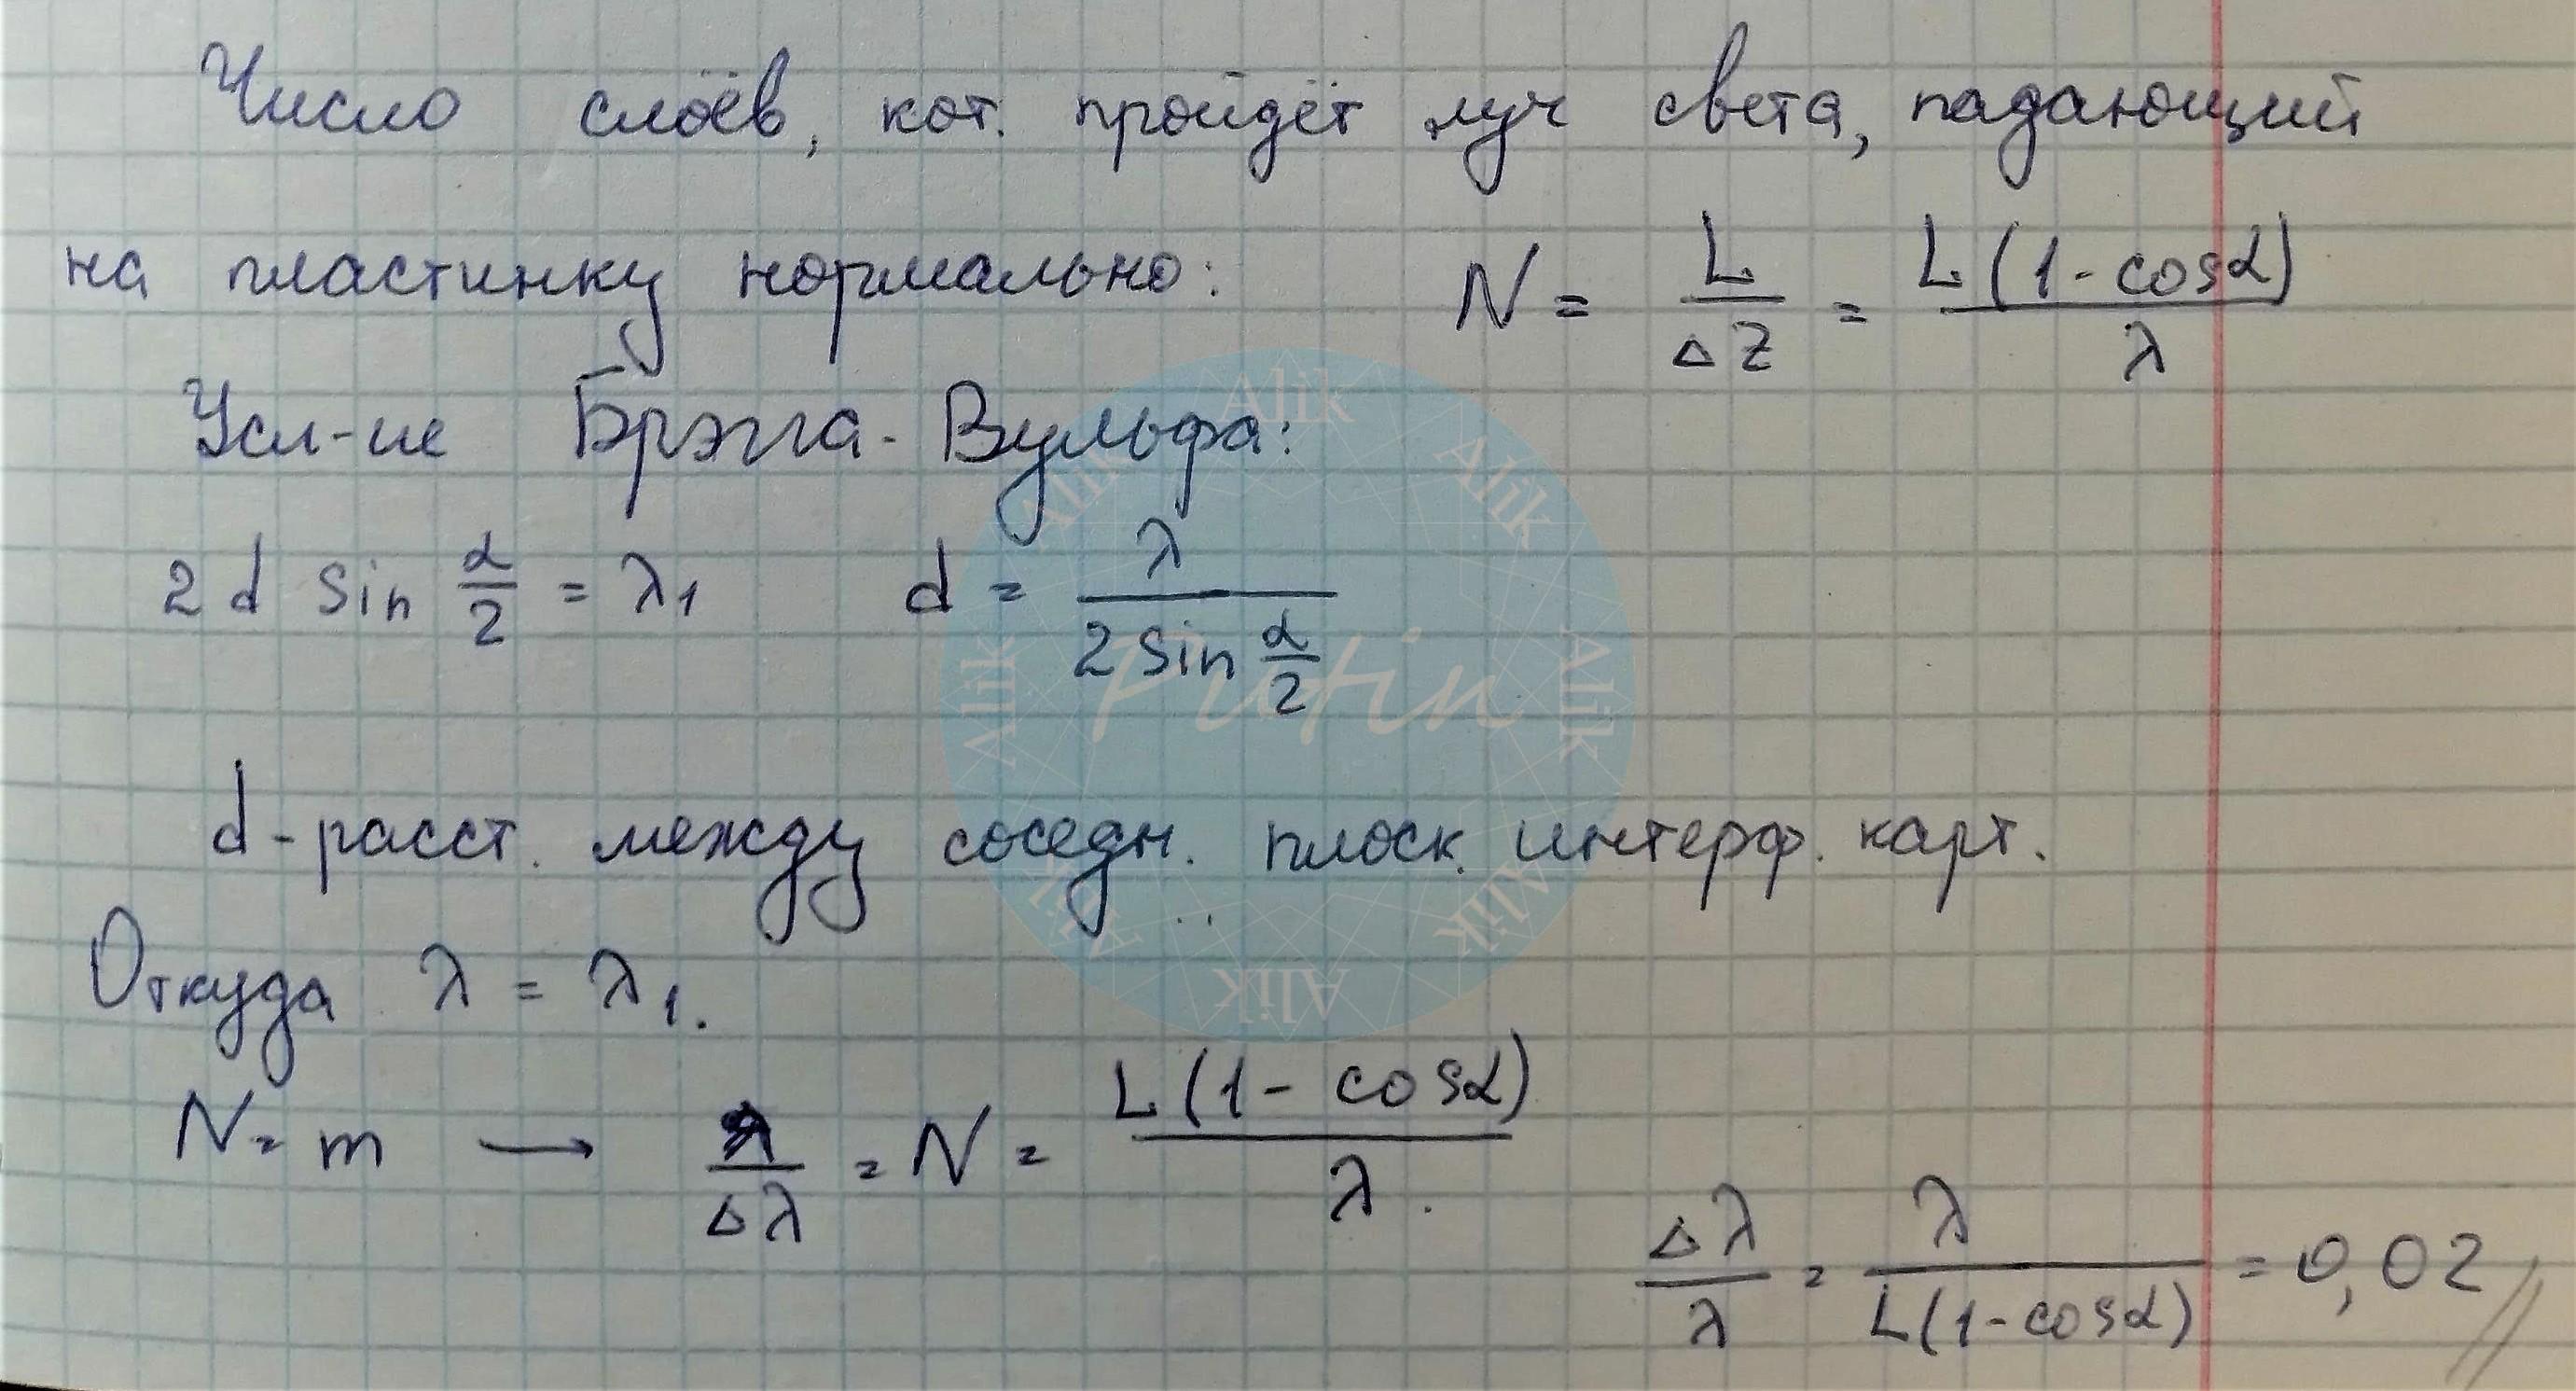 Число слоёв, кот. пройдёт луч света, падающий
на пластинку нормально: N = L/ΔZ = L(1-cosα)/λ
Усл-ие Брэгга-Вульфа:
2d sin α/2 = λ₁ d = λ/(2 sin α/2)
d-расст. между соседн. плоск. интерф. карт.
Откуда λ = λ₁.
N = m → λ/Δλ = N = L(1-cosα)/λ.
Δλ/λ = λ/(L(1-cosα)) = 0,02
Alik
Alik
Alik
Alik
Alik
Alik
Alik
Alik
Putin